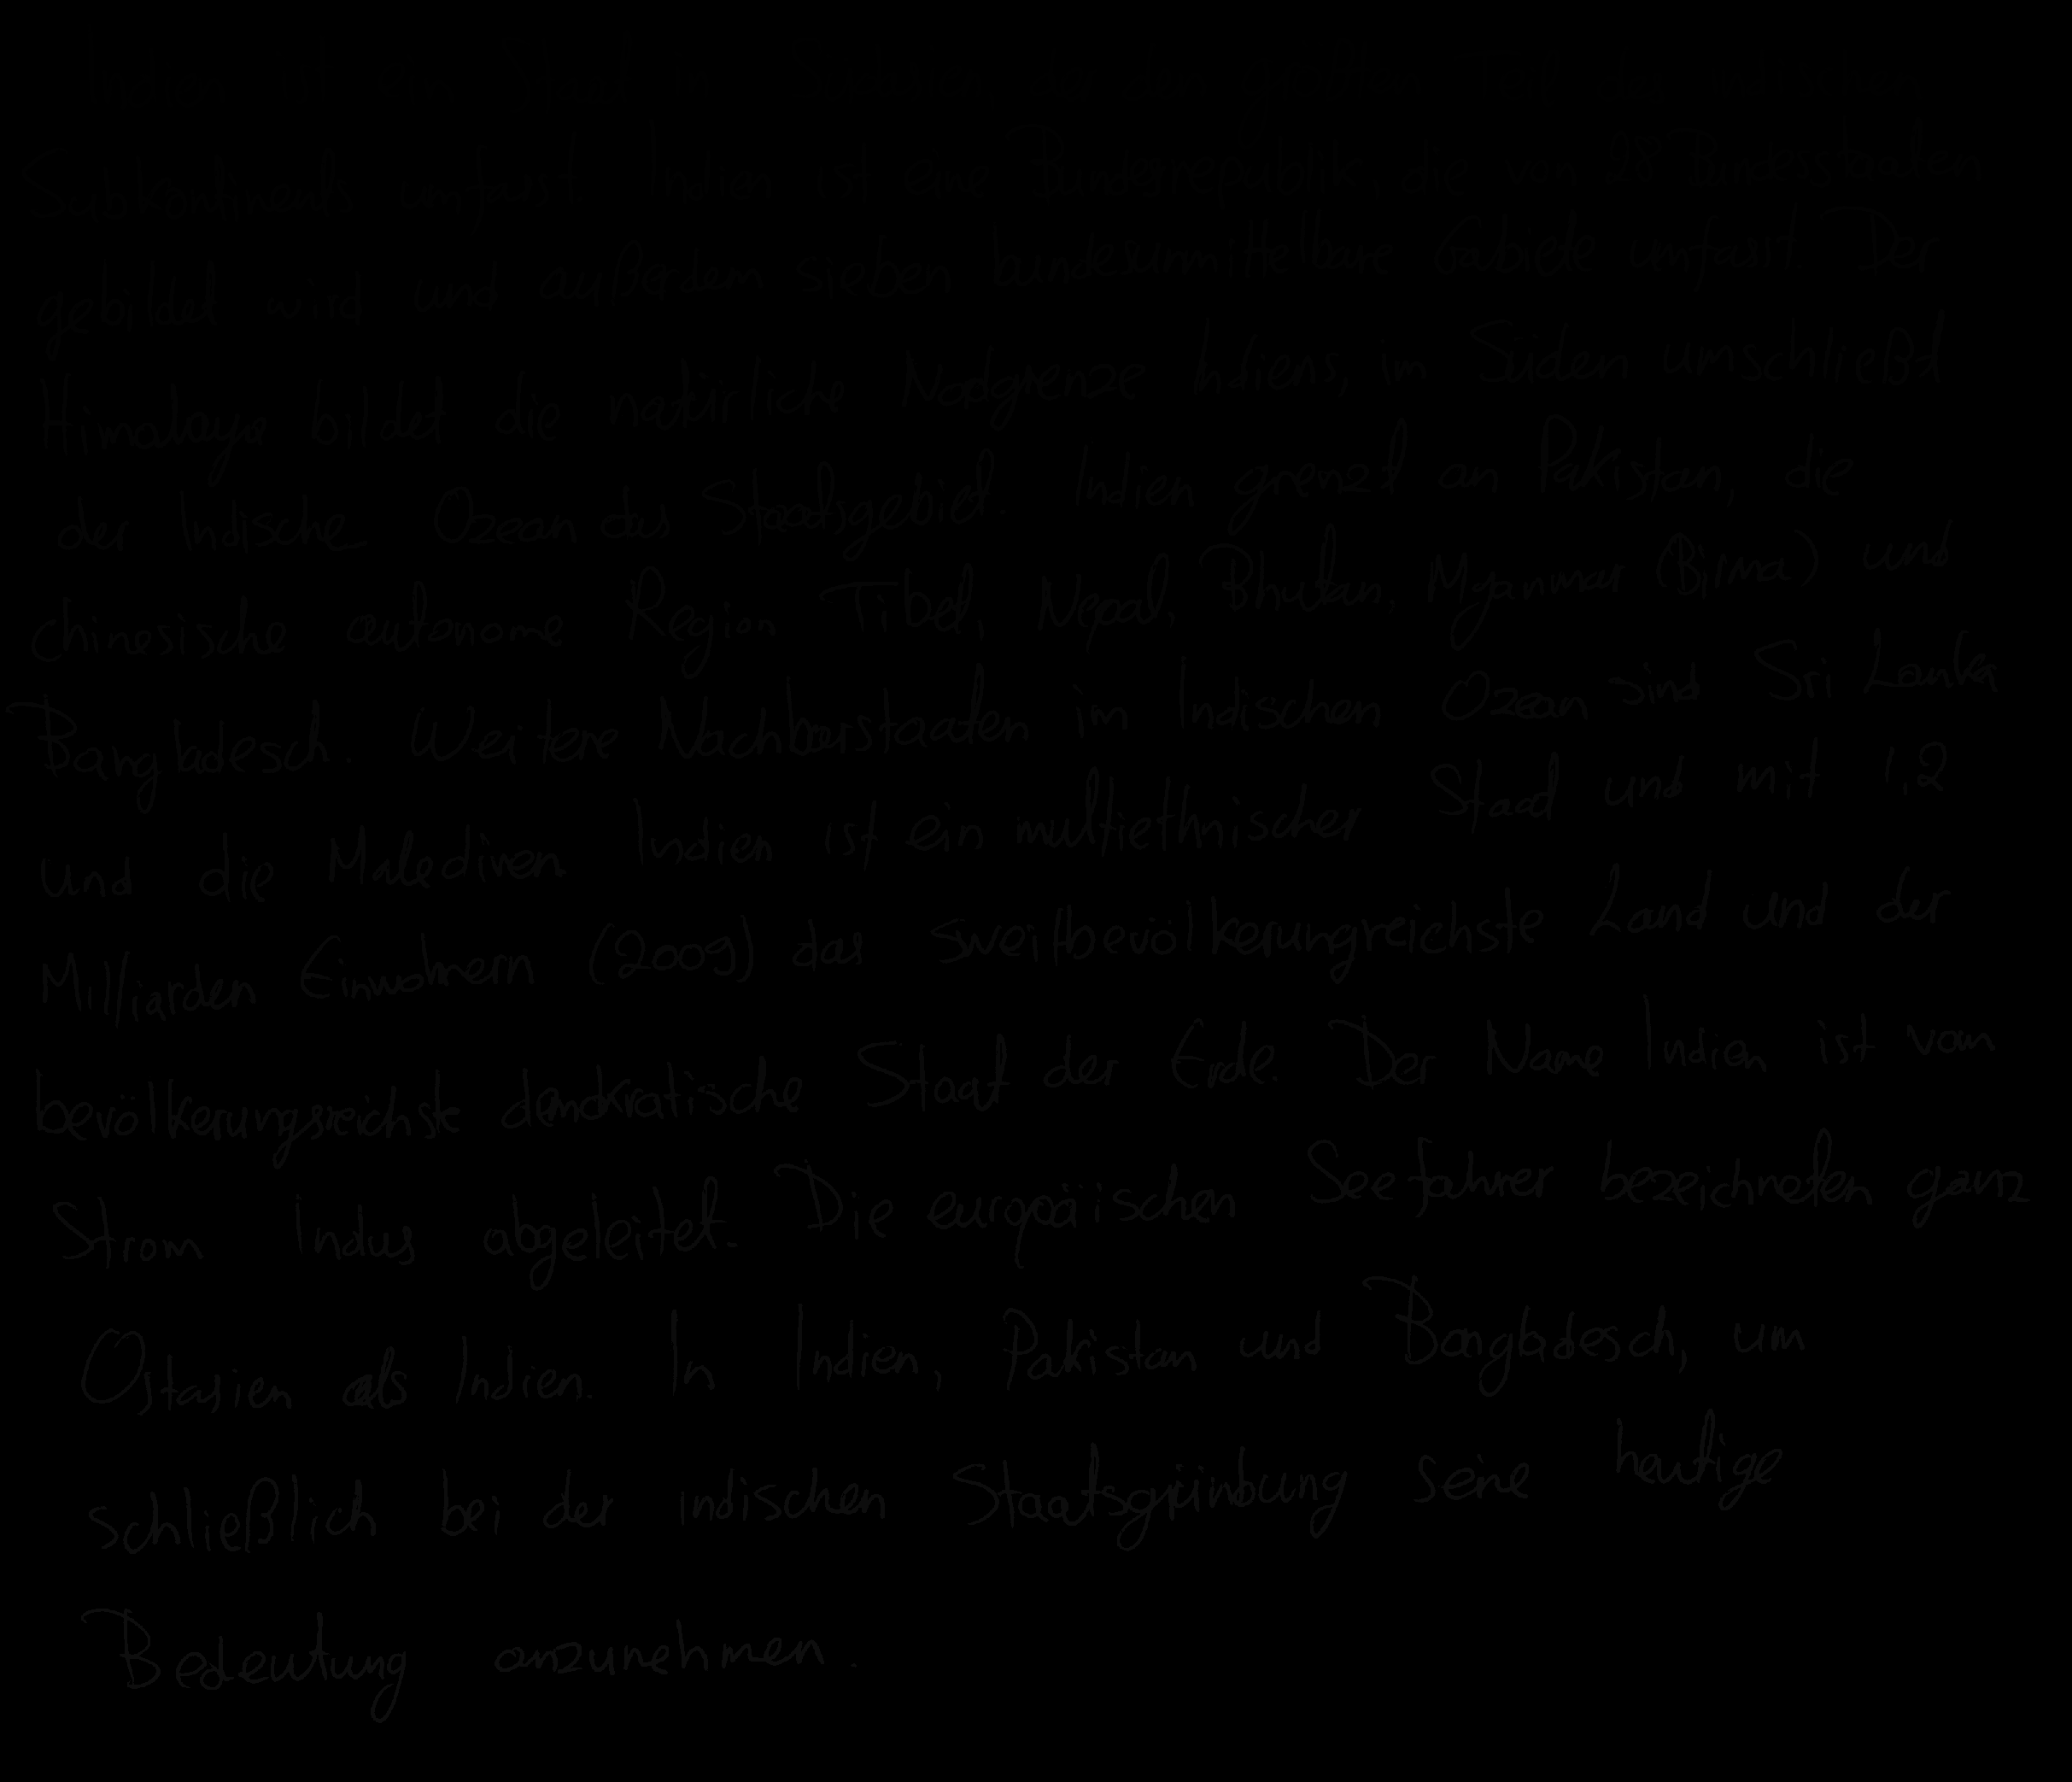 Indien ist ein Staat in Südasien, der den größten Teil des indischen
Subkontinents umfasst. Indien ist eine Bundesrepublik, die von 28 Bundesstaaten
gebildet wird und außerdem sieben bundesunmittelbare Gabiete umfasst Der
Himalaya bildet die natürliche Nordgrenze Indiens, im Süden umschließt
der Indische Ozean das Staatsgebiet. Indien grenzt an Pakistan, die
chinesische autonome Region Tibet, Nepal, Bhutan, Myanmar (Birma) und
Bangladesch. Weitere Nachbarstaaten im Indischen Ozean sind Sri Lanka
und die Malediven Indien ist ein multiethnischer Staat und mit 1,2
Milliarden Einwohnern (2009) das sweitbevölkerungreichste Land und der
bevölkerungsreichste demokratische Staat der Erde. Der Name Indien ist vom
Strom Indus abgeleitet. Die europäischen Seefahrer bezeichneten ganz
Ostasien als Indien. In Indien, Pakistan und Bangladesch, um
schließlich bei der indischen Staatsgründung seine heutige
Bedeutung anzunehmen.